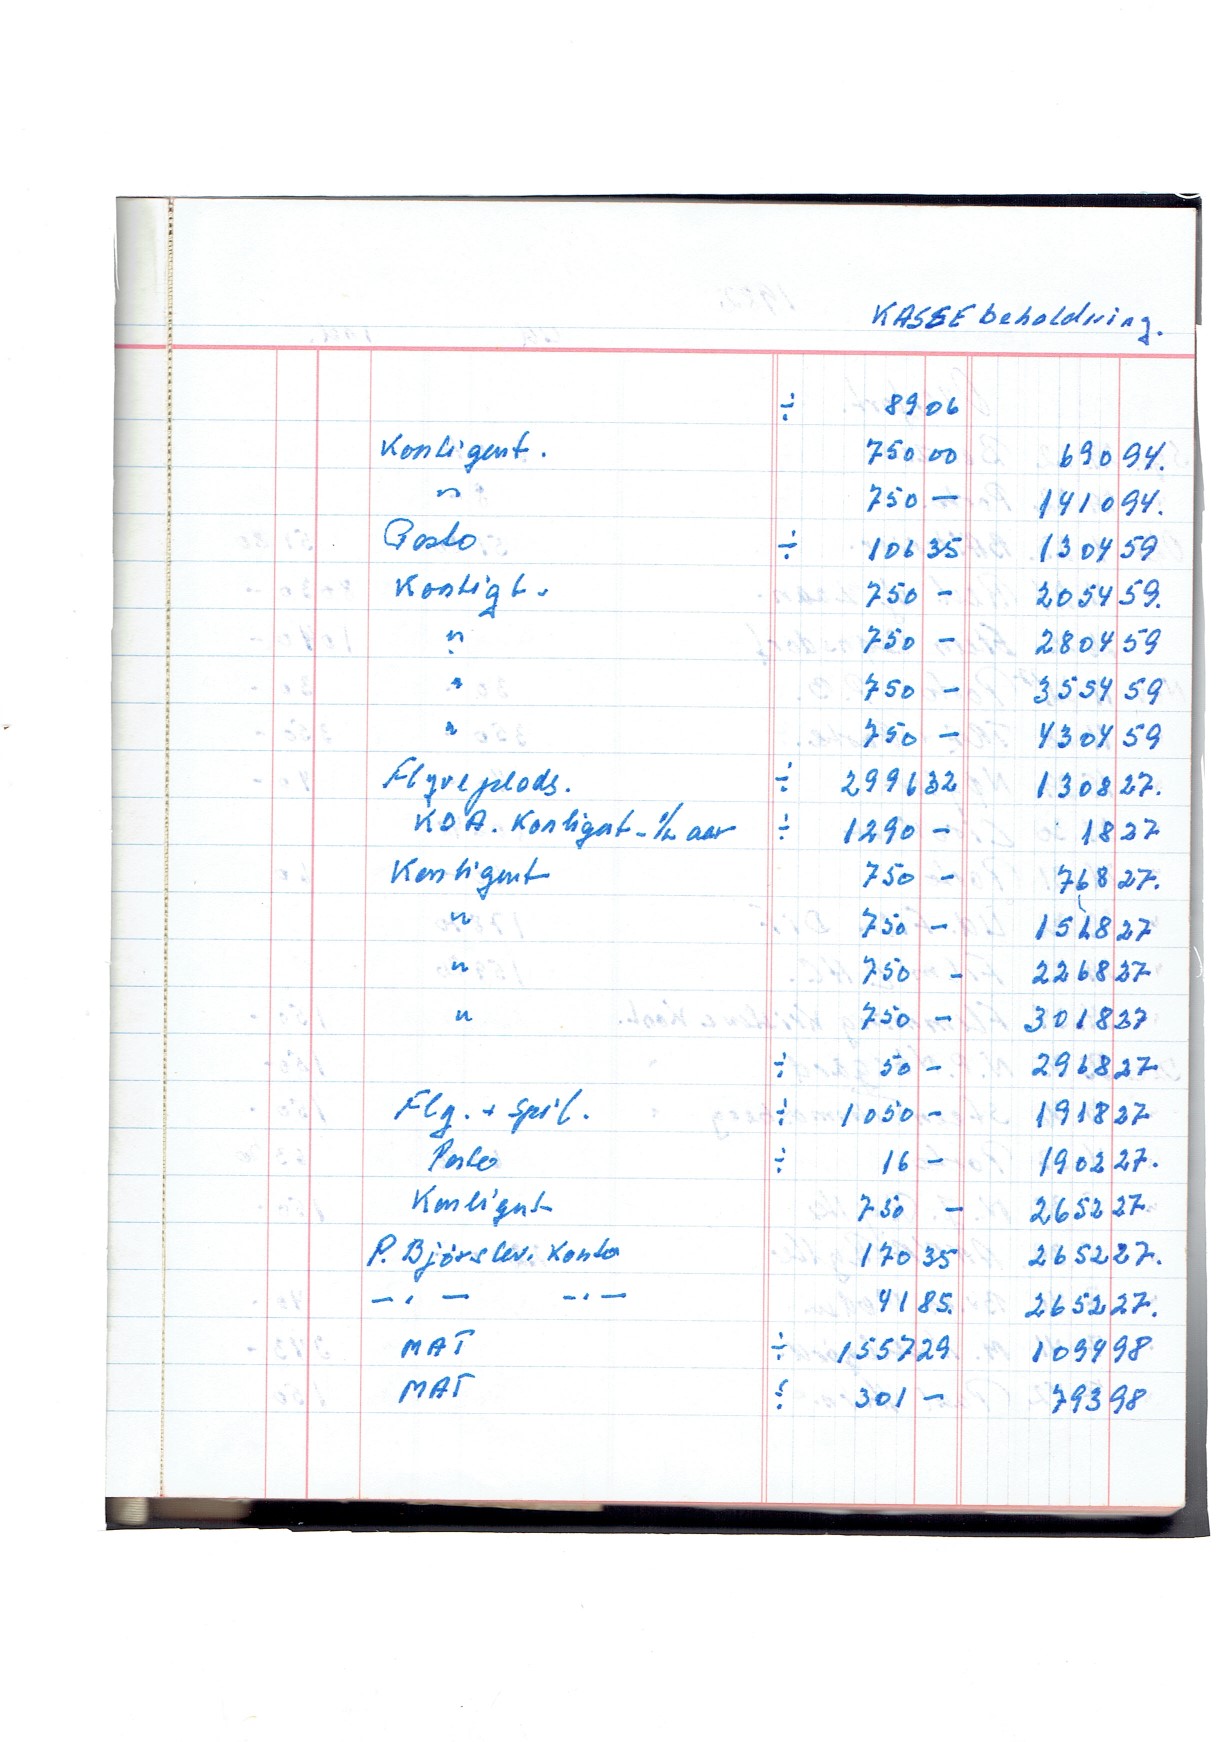 KASSE beholdning.
÷ 89 06
Kontigent. 750 00 690 94.
" 750 — 1410 94.
Porto ÷ 106 35 1304 59
Kontigt. 750 — 2054 59.
" 750 — 2804 59
" 750 — 3554 59
" 750 — 4304 59
Flyveplads. ÷ 2996 32 1308 27.
KDA. Kontigent - 1/2 aar ÷ 1290 — 18 27
Kontigent 750 — 768 27.
" 750 — 1518 27
" 750 — 2268 27
" 750 — 3018 27
÷ 50 — 2968 27
Flg. + Spil. ÷ 1050 — 1918 27
Porto ÷ 16 — 1902 27.
Kontigent 750 — 2652 27.
P. Bjørslev. Konto 170 35 2652 27.
— . — — . — 41 85. 2652 27.
MAT ÷ 1557 29 1094 98
MAT ÷ 301 — 793 98